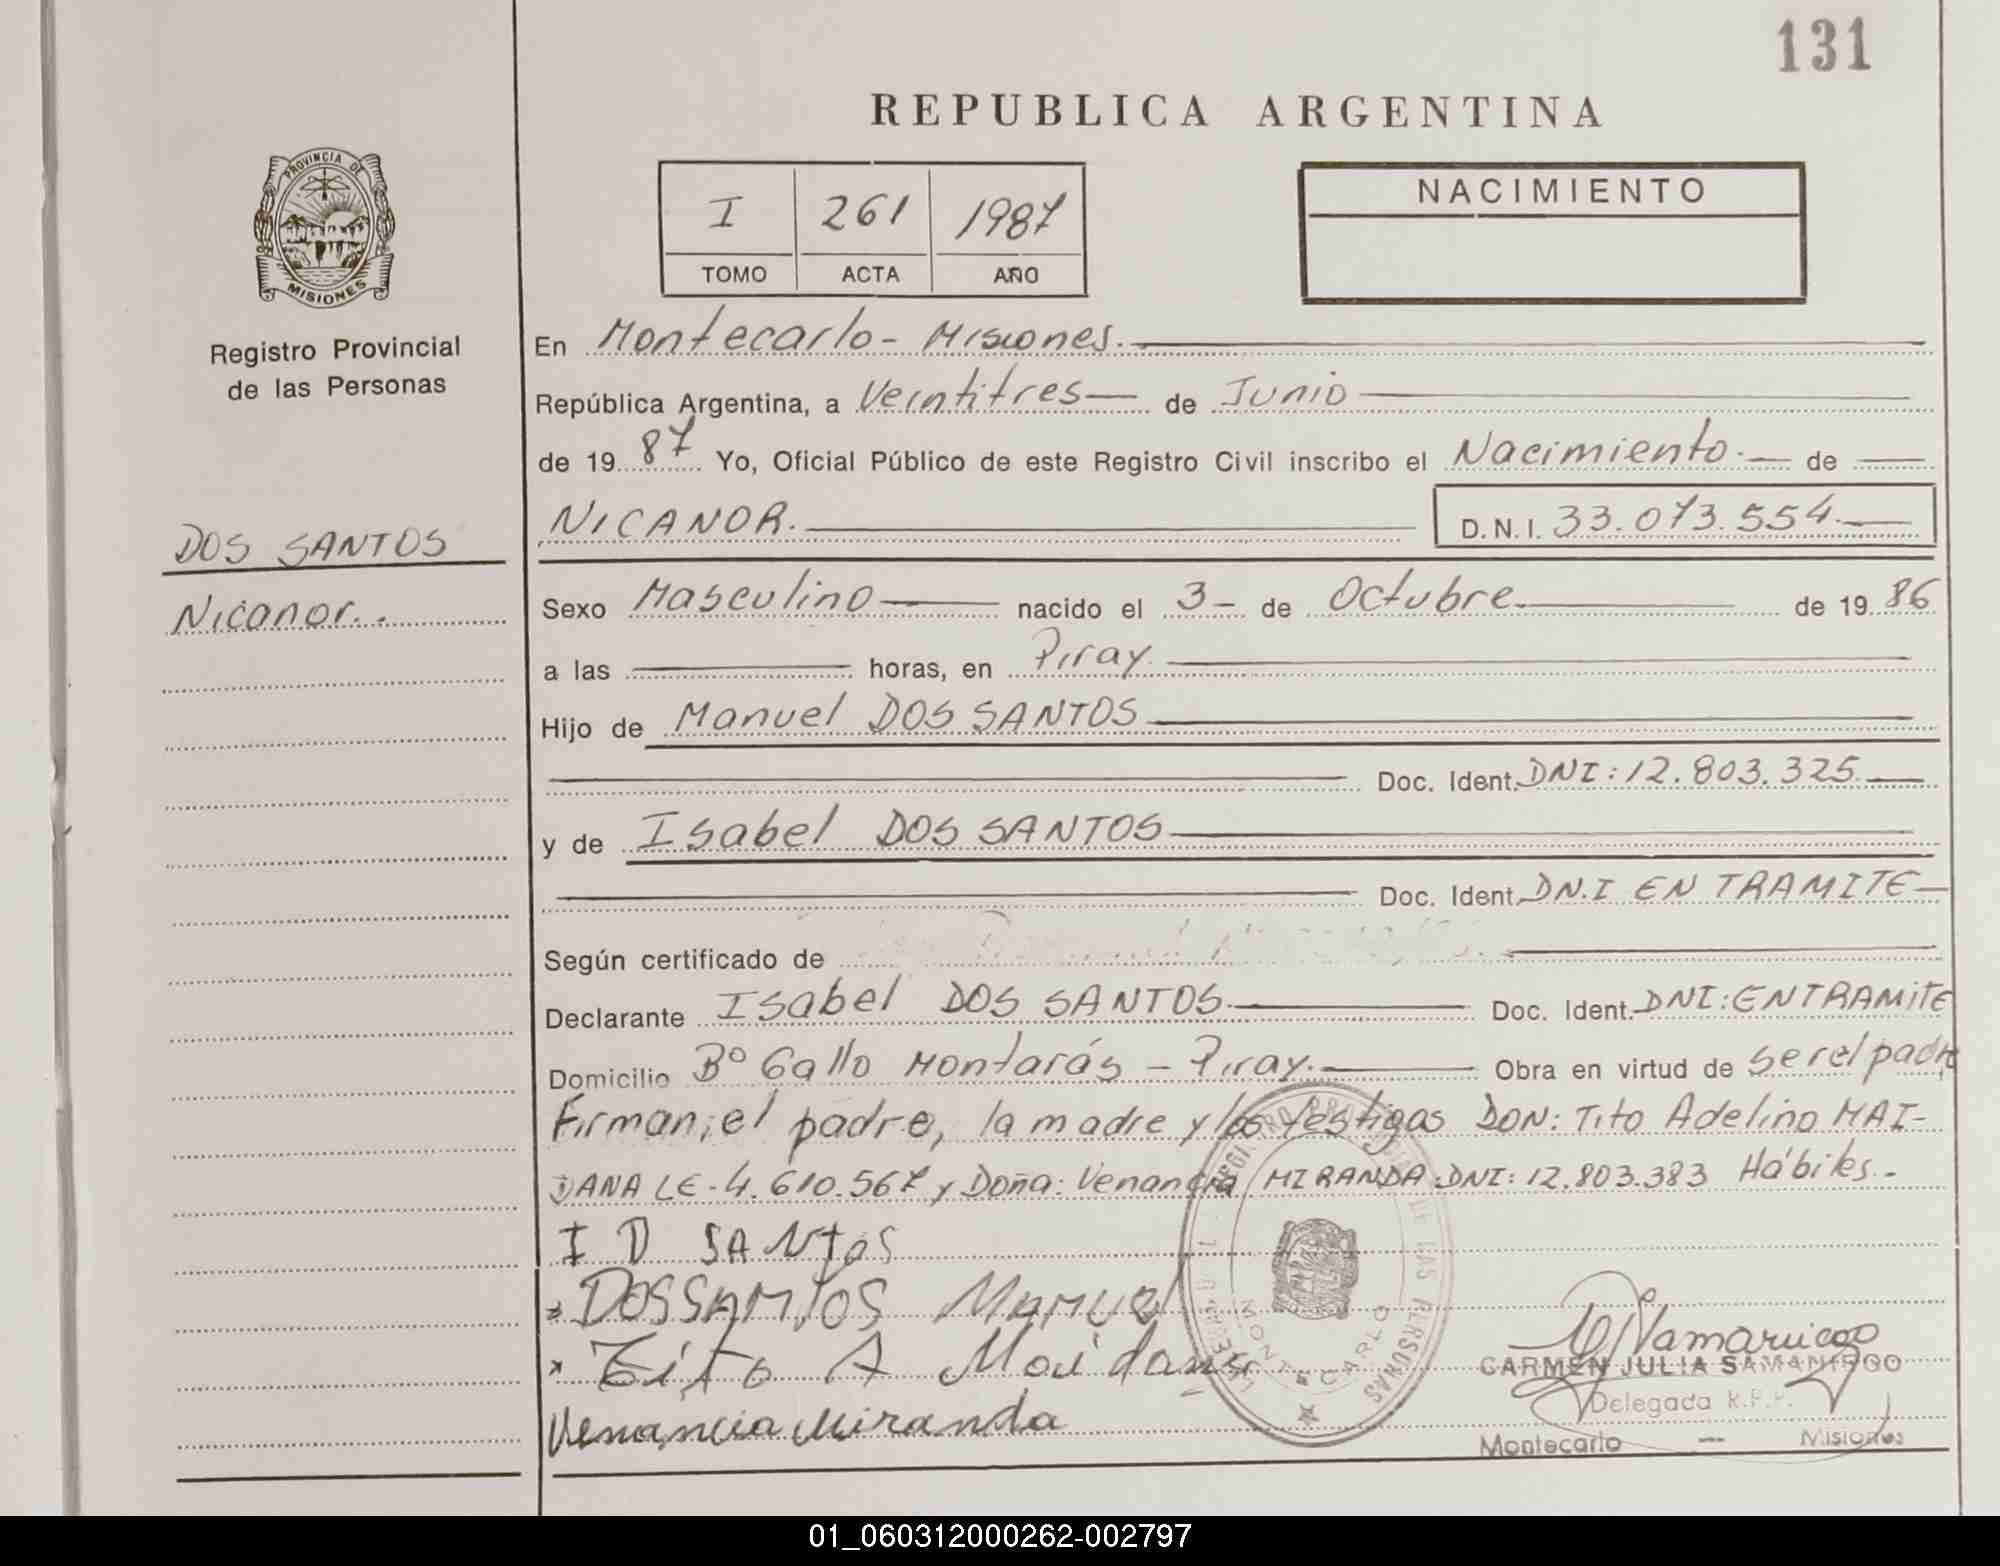 131
REPUBLICA ARGENTINA
PROVINCIA DE
MISIONES
Registro Provincial
de las Personas
DOS SANTOS
Nicanor..
I 261 1987
TOMO ACTA AÑO
NACIMIENTO
En Montecarlo - Misiones.
República Argentina, a Veintitres de Junio
de 19 87 Yo, Oficial Público de este Registro Civil inscribo el Nacimiento.- de
NICANOR. D.N.I. 33.073.554.
Sexo Masculino nacido el 3 - de Octubre de 19 86
a las horas, en Piray.
Hijo de Manuel DOS SANTOS
Doc. Ident. DNI: 12.803.325
y de Isabel DOS SANTOS
Doc. Ident. DN.I EN TRAMITE
Según certificado de
Declarante Isabel DOS SANTOS. Doc. Ident. DNI: EN TRAMITE
Domicilio Bº Gallo Montarás - Piray. Obra en virtud de ser el padre
Firman; el padre, la madre y los testigos DON: Tito Adelino MAI-
DANA LE - 4.610.567 y Doña: Venancia MIRANDA DNI: 12.803.383 Hábiles.-
I D SANtos
DOSSANTOS Manuel
Tito A Maidana
Venancia Miranda
REGISTRO DE LAS PERSONAS
MONTECARLO
CARMEN JULIA SAMANIEGO
Delegada R.P.P.
Montecarlo — Misiones
01_060312000262-002797